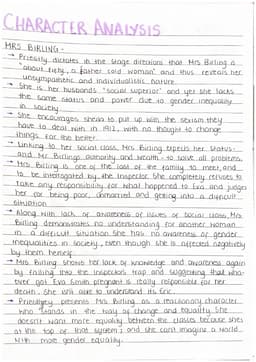 CHARACTER ANALYSIS
MRS BIRLING -
→ Priestley dictates in the stage directions that Mrs Birling is a
"about fifty, a rather cold woman" and thus reveals her
unsympathetic and individualistic nature.
→ She is her husbands "social superior" and yet she lacks
the same status and power due to gender inequality
in society.
→ She encourages Sheila to put up with the sexism they
have to deal with in 1912, with no thought to change
things for the better.
→ Linking to her social class, Mrs Birling expects her status -
and Mr Birlings authority and wealth - to solve all problems.
→ Mrs Birling is one of the last of the family to meet, and
to be interrogated by, the Inspector. She completely refuses to
take any responsibility for what happened to Eva and judges
her for being poor, unmarried and getting into a difficult
situation.
→ Along with lack of awareness of issues of social class, Mrs
Birling demonstrates no understanding for another woman
in a difficult situation. She has no awareness of gender
inequalities in society, even though she is affected negatively
by them herself.
→ Mrs Birling shows her lack of knowledge and awareness again
by falling into the Inspectors trap and suggesting that who-
ever got Eva Smith pregnant is really responsible for her
death. She fails to understand its Eric.
→ Priestley presents Mrs Birling as a reactionary character
who stands in the way of change and equality. She
doesn't want more equality between the classes because she's
at the top of that system; and she can't imagine a world
with more gender equality.